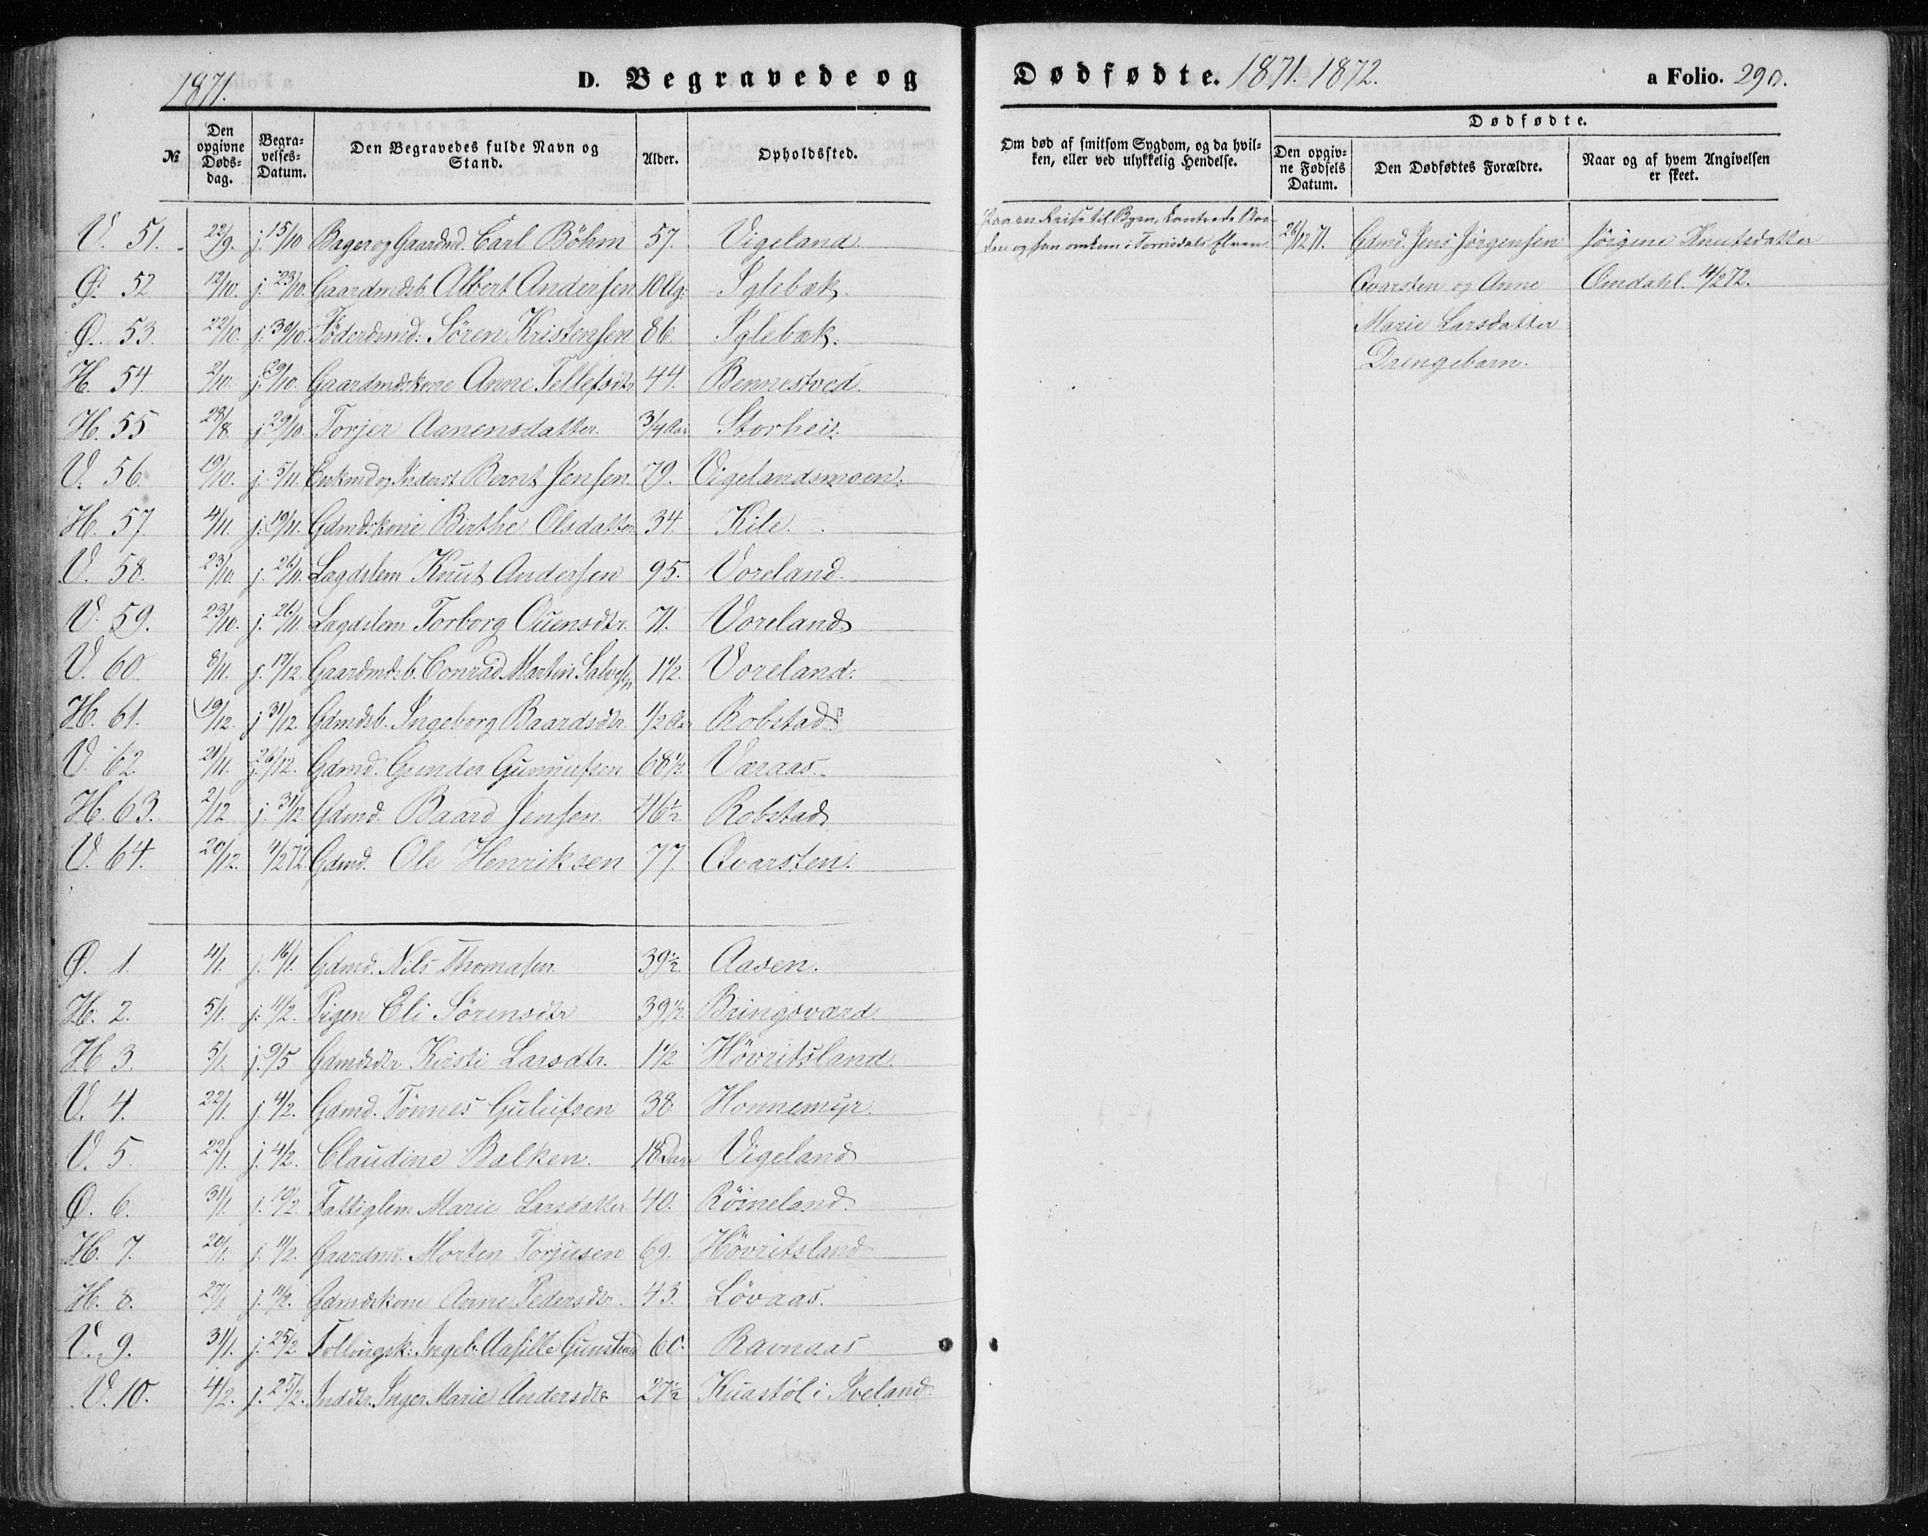 1871.
D. Begravede og
Dødfødte. 1871. 1872.
a Folio. 290.
№
Den opgivne Døds-dag.
Begra-velses-Datum.
Den Begravedes fulde Navn og Stand.
Alder.
Opholdssted.
Om død af smitsom Sygdom, og da hvil-ken, eller ved ulykkelig Hendelse.
Dødfødte.
Den opgiv-ne Fødsels Datum.
Den Dødfødtes Forældre.
Naar og af hvem Angivelsen er skeet.
V. 51. 22/9. j. 15/10 Bager og Gaardmd. Carl Böhm 57. Vigeland
Ø. 52 12/10. j. 23/10. Gaardmdsb. Albert Andersen 10 Ug. Iglebæk.
Ø. 53. 22/10 j. 30/10. Föderdsmd: Sören Kristensen 86. Iglebæk.
H. 54. 2/10. j. 29/10. Gaardmdskone Anne Tellefsdtr 44. Bennestved.
H. 55 28/8. j. 29/10. Torjer Aanensdatter. 3/4 Aar Storhei.
V. 56. 19/10. j. 5/11. Enkmd og Inderst Bernt Jensen. 79. Vigelandsmoen.
H. 57. 4/11. j. 19/11. Gdmdskone Birthe Olsdatter 34. Kile.
V. 58. 23/10. j. 26/11. Lægdslem Knut Andersen 95. Voreland.
V. 59. 23/10. j. 26/11. Lægdslem Torborg Ouensdtr. 71. Voreland
V. 60. 8/11. j. 17/12 Gaardmdsb. Conrad Martin Salvesen 1 1/2. Voreland.
H. 61. 19/12. j. 31/12. Gdmdsb. Ingeborg Baardsdtr. 1/2 Aar Robstad
V. 62 21/11. j. 26/12. Gdmd. Gunder Gunnufsen 68 1/2. Varaas.
H. 63. 2/12 j. 31/12 Gdmd. Baard Jensen. 46 1/2 Robstad
V. 64. 20/12. 4/2 72. Gdmd. Ole Henriksen 77. Qvarsten.
Ø. 1. 4/1. j. 16/1. Gdmd. Nils Thomasen 39 1/2 Aasen.
H. 2. 5/1. j. 4/2. Pigen Eli Sörensdtr 39 1/2. Bringsværd.
H. 3. 5/1. j. 9/5 Gdmdsdtr Kirsti Larsdtr. 1 1/2 Hövritsland.
V. 4. 22/1. j. 4/2. Gdmd. Tönnes Gulufsen 38. Honnemyr.
V. 5. 22/1. j. 4/2. Claudine Balken. 18 Vigeland
Ø. 6. 31/1. j. 10/2. Fattiglem Marie Larsdatter 40. Röineland.
H. 7. 20/1. j. 11/2. Gaardmd. Morten Torjusen 69. Hövritsland
H. 8. 27/1. j. 11/2. Gdmdskone Anne Pedersdtr. 43. Lövaas.
V. 9. 31/1. j. 25/2. Ingeb. Aasille 60. Ravnaas
V. 10. 4/2. j. 25/2. Inger Marie Andersdtr 27 1/2 Kuastöl i Iveland.
Paa en Reise til Byen, kantrede Baa-
den og han omkom i Torrisdals Elven
26/12 71. Gdmd. Jens Jörgensen
Qvarsten og Anne
Marie Larsdatter
Drengebarn.
Jörgine Knutsdatter
Omdahl. 4/2 72.